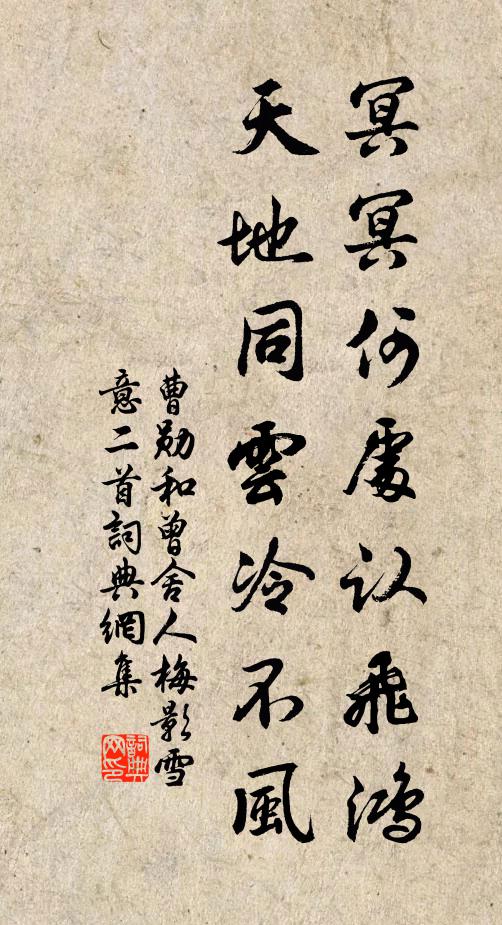 冥冥何處认飛鴻
天地同雲冷不風
曹勋和曾舍人梅影雪
意二首詞典網集
詞典
网印